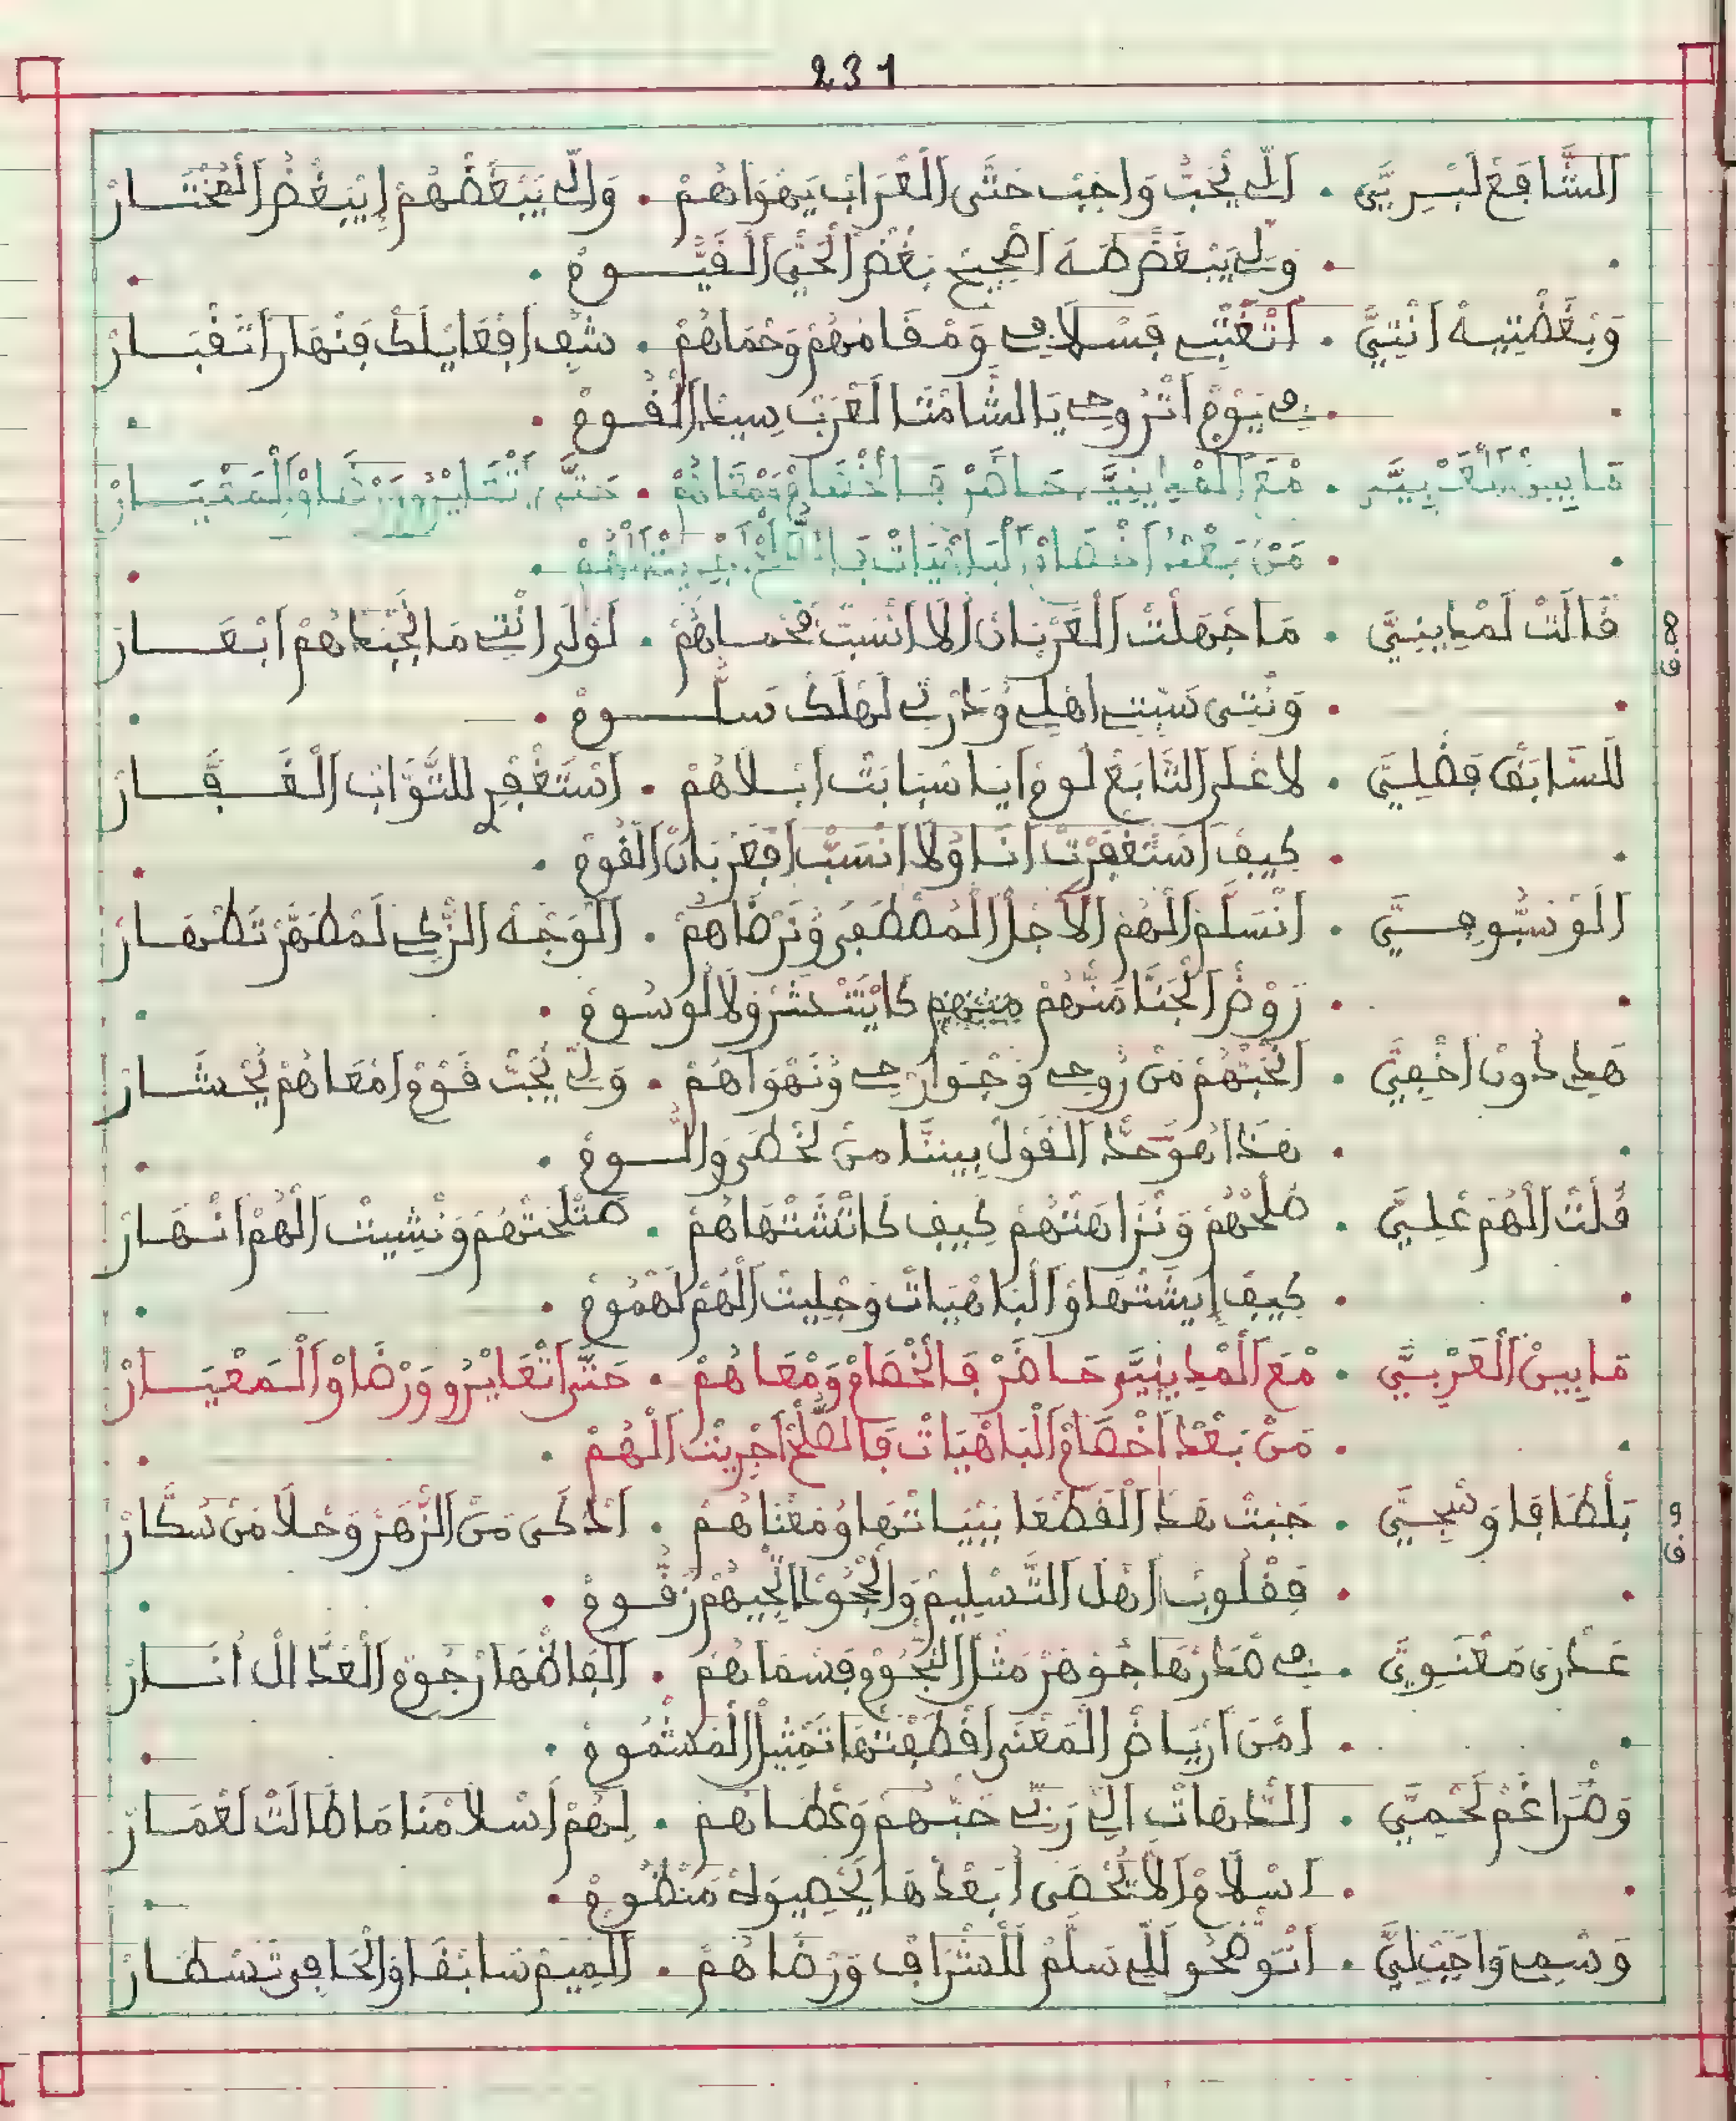 231
الشَّافَعْ لَبْرِيَّى . اَلِّي يْحَبّْ وَاجَبْ حَتَّى الْعْرَابْ يَهْوَاهُمْ . وَالِّي يَبْغَضْهُمْ اِيْبْغُضْ اَلْمُخْتَارْ
. وَلِّي يَبْغَضْ طَهَ اصْحِيحْ بْغَضْ الْحَيّْ الْقَيُّومْ .
وَبْغَضْتِيهْ انْتِيَّ . اَتْعَبْتِي فَسْلَامِي وَمْقَامْهُمْ وَحْمَاهُمْ . شَفِ افْعَايْلَكْ فَنْهَارْ اَتَّقْبَارْ
. فِي يَوْمْ اتْرُوحِي يَا الشَّامْتَا لَعْرَبْ سِيدْ الْقُومْ .
مَا بِينْ الْعَرْبِيَّ . مْعَ الْمْدِينِيَّ حَاضَرْ فَالْخْصَامْ وَمْعَاهُمْ . حَتَّى اتْعَايْرُو وَرْضَاوْ الْمَعْيَارْ
. مَنْ بَعْدْ اخْصَامْ الْبَاهْيَاتْ فَالصَّلْحْ اجْرِيتْ الْهُمْ .
قَالَتْ لَمْدِينِيَّ . مَا جَهَلْتْ الْعَرْبَانْ الَا انْسَبّْ فَحْمَاهُمْ . لَوْلَى انْتِي مَا نْجْبْدَاهُمْ ابْعَارْ
. وَنْتِي سَبِّيتِي اهْلِي وْدَرْتِي لَهْلَكْ سَلُّومْ .
لَلسَّابَقْ فَضْلِيَّ . لَا عْلَى التَّابَعْ لَومْ ايَا سْبَابَتْ ابْلَاهُمْ . اسْتَغْفِرِ للتَّوَّابْ الْغَفَّارْ
. كِيفْ اسْتَغْفَرْتْ انَا وْلَا انْسَبّْ افْعَرْبَانْ الْقُومْ .
الْوَنْبُوهِيَّ . انْسَلَّمْ الْهُمْ الَاجْلْ الْمُصْطَفَى وْنَرْضَاهُمْ . الْوَجْهْ الزَّكِي لَمْطَهَّرْ تَطْهَارْ
. رَوْضْ الْجَنَّا مَنْهُمْ مِنْهُمْ كَايْتَنْشَرْ وَلَا لُو سُومْ .
هَدِي دُونْ اخْفِيَّ . انْحَبْهُمْ مَنْ رُوحِي وَجْوَارْحِي وُنَهْوَاهُمْ . وَلِّي يْحَبّْ قَوْمْ امْعَاهُمْ يُحْشَارْ
. هَذَا هُوَ حَدّْ الْقَوْلْ بِينْنَا مَنْ لَخْصَمْ وَاللُّومْ .
قُلْتْ الْهُمْ عْلِيَّ . صُلْحْهُمْ وَنْزَاهَتْهُمْ كِيفْ كَاتَّشْتْهَاهُمْ . صَتْلَحْتْهُمْ وَنْشِيتْ الْهُمْ انْهَارْ
. كِيفْ اِيشَتْهَاوْ الْبَاهْيَاتْ وَجْلِيتْ الْهُمْ لَهْمُومْ .
مَا بِينْ الْعَرْبِيَّ . مْعَ الْمْدِينِيَّ حَاضَرْ فَالْخْصَامْ وَمْعَاهُمْ . حَتَّى اتْعَايْرُو وَرْضَاوْ الْمَعْيَارْ
. مَنْ بَعْدْ اخْصَامْ الْبَاهْيَاتْ فَالصَّلْحْ اجْرِيتْ الْهُمْ .
بَلْطَافَا وَسْجِيَّ . جَبْتْ هَذْ الْقَطْعَا بَبْيَاتْهَا وُمَعْنَاهُمْ . اَدْكَى مَنْ الزَّهَرْ وَحْلَا مَنْ سُكَّارْ
. فَقْلُوبْ اهْلْ التَّسْلِيمْ وَالْجُودْ الْجِيهُمْ زَقُّومْ .
عَدْرَى مَعْنَوِيَّ . فِي صْدَرْهَا جَوْهَرْ مَثْلْ النّْجُومْ فَسْمَاهُمْ . الْفَاظْهَا رْجُومْ الْعَدَّالْ اَنَارْ
. امْنْ ارْيَاضْ الْمَعْنَى اقْطَفْتْهَا تَمْثِيلْ الْمَشْمُومْ .
وَضْرَاغَمْ لَحْمِيَّ . الدّْهَاتْ الِّي رَبِّي حَبّْهُمْ وَعْطَاهُمْ . لِهُمْ اسْلَامْنَا مَا طَالَتْ لَعْمَارْ
. اسْلَامْ الَا يُحْصَى ابَعْدْهَا يَحْصِيوَهْ مَنْظُومْ .
وَسْمِي وَاجَبْ لِيَّ . انْوَضّْحُو للِّي سَلَّمْ لَلشْرَافْ وَرْضَاهُمْ . الْمِيمْ سَابْقَا وْالْحَا فِي تَسْطَارْ